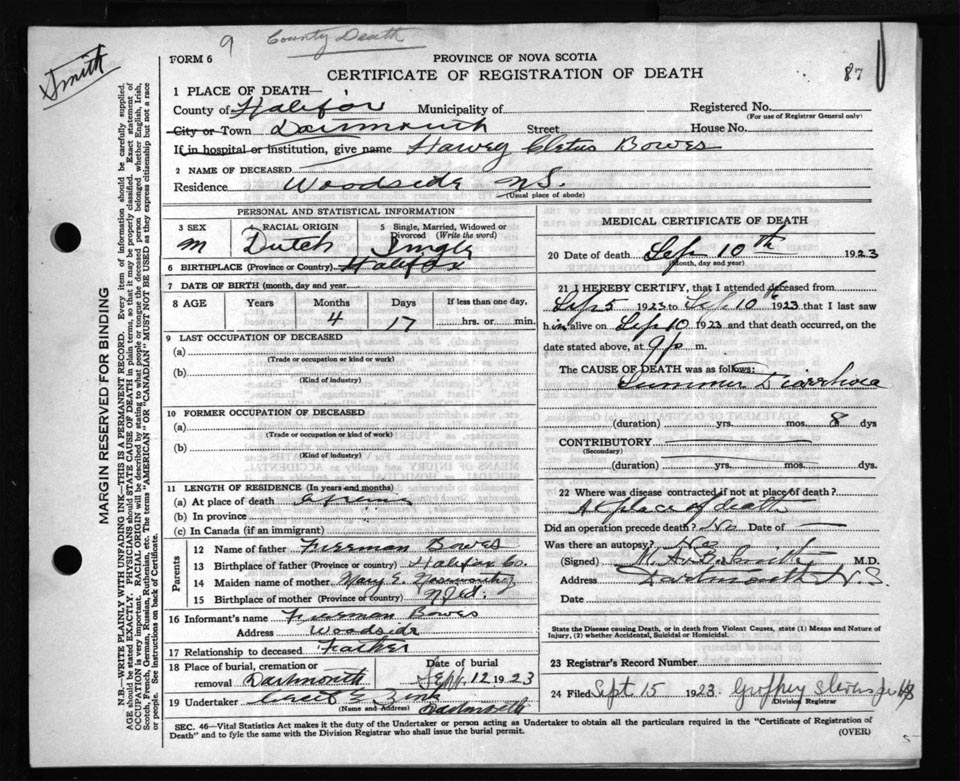 9 County Death
Smith
FORM 6
PROVINCE OF NOVA SCOTIA
CERTIFICATE OF REGISTRATION OF DEATH
87
MARGIN RESERVED FOR BINDING
N.B.—WRITE PLAINLY WITH UNFADING INK—THIS IS A PERMANENT RECORD. Every item of information should be carefully supplied.
AGE should be stated EXACTLY. PHYSICIANS should STATE CAUSE OF DEATH in plain terms, so that it may be properly classified. Exact statement of
OCCUPATION is very important. RACIAL ORIGIN will be described by stating to what people or tongue the deceased person belonged whether English, Irish,
Scotch, French, German, Russian, Ruthenian, etc. The terms "AMERICAN" OR "CANADIAN" MUST NOT BE USED as they express citizenship but not a race
or people. See instructions on back of Certificate.
1 PLACE OF DEATH—
County of Halifax Municipality of Registered No.
(For use of Registrar General only)
City or Town Dartmouth Street House No.
If in hospital or institution, give name Harvey Cletus Bowes
2 NAME OF DECEASED
Residence Woodside N.S.
(Usual place of abode)
PERSONAL AND STATISTICAL INFORMATION
3 SEX 4 RACIAL ORIGIN 5 Single, Married, Widowed or
Divorced (Write the word)
M Dutch Single
6 BIRTHPLACE (Province or Country) Halifax
7 DATE OF BIRTH (month, day, and year)
8 AGE Years Months Days If less than one day,
4 17 hrs. or min.
9 LAST OCCUPATION OF DECEASED
(a)
(Trade or occupation or kind or work)
(b)
(Kind of industry)
10 FORMER OCCUPATION OF DECEASED
(a)
(Trade or occupation or kind of work)
(b)
(Kind of industry)
11 LENGTH OF RESIDENCE (In years and months)
(a) At place of death
(b) In province
(c) In Canada (if an immigrant)
Parents
12 Name of father Freeman Bowes
13 Birthplace of father (Province or country) Halifax Co.
14 Maiden name of mother Mary E.
15 Birthplace of mother (Province or country) Nfld.
16 Informant's name Freeman Bowes
Address Woodside
17 Relationship to deceased Father
18 Place of burial, cremation or Date of burial
removal Dartmouth Sept. 12 1923
19 Undertaker Cecil E. Zink
(Name and Address) Dartmouth
MEDICAL CERTIFICATE OF DEATH
20 Date of death Sep 10th 1923
(Month, day and year)
21 I HEREBY CERTIFY, that I attended deceased from
Sep 5 1923 to Sep 10th 1923 that I last saw
him alive on Sep 10 1923 and that death occurred, on
date stated above, at 9 p m.
The CAUSE OF DEATH was as follows:
Summer Diarrhoea
(duration) yrs. mos. 8 dys
CONTRIBUTORY
(Secondary)
(duration) yrs. mos. dys.
22 Where was disease contracted if not at place of death?
At place of death
Did an operation precede death? No Date of
Was there an autopsy? No
(Signed) Smith M.D.
Address Dartmouth N.S.
Date
State the Disease causing Death, or in death from Violent Causes, state (1) Means and Nature of
Injury, (2) whether Accidental, Suicidal or Homicidal.
23 Registrar's Record Number
24 Filed Sept 15 1923 Geoffrey Stevens
Division Registrar
SEC. 46—Vital Statistics Act makes it the duty of the Undertaker or person acting as Undertaker to obtain all the particulars required in the "Certificate of Registration of
Death" and to fyle the same with the Division Registrar who shall issue the burial permit. (OVER)